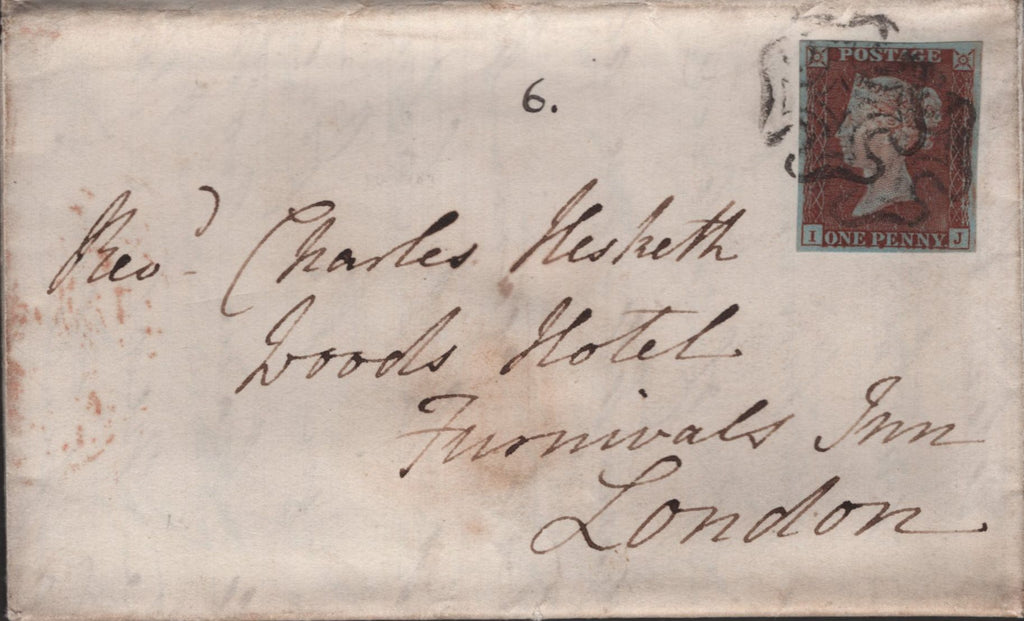 6.
POSTAGE
I ONE PENNY J
Revd Charles Hesketh
Woods Hotel
Furnivals Inn
London